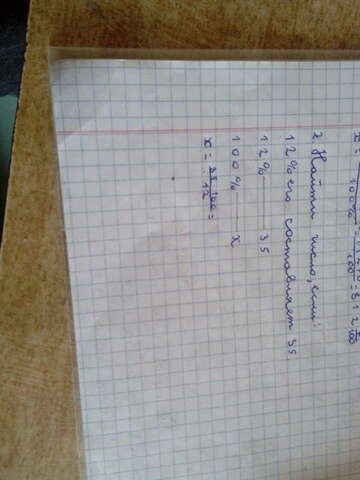 100%
100
2. Найти число, если:
12% его составляет 35
12% — 35
100% — x
x = 35·100/12 =